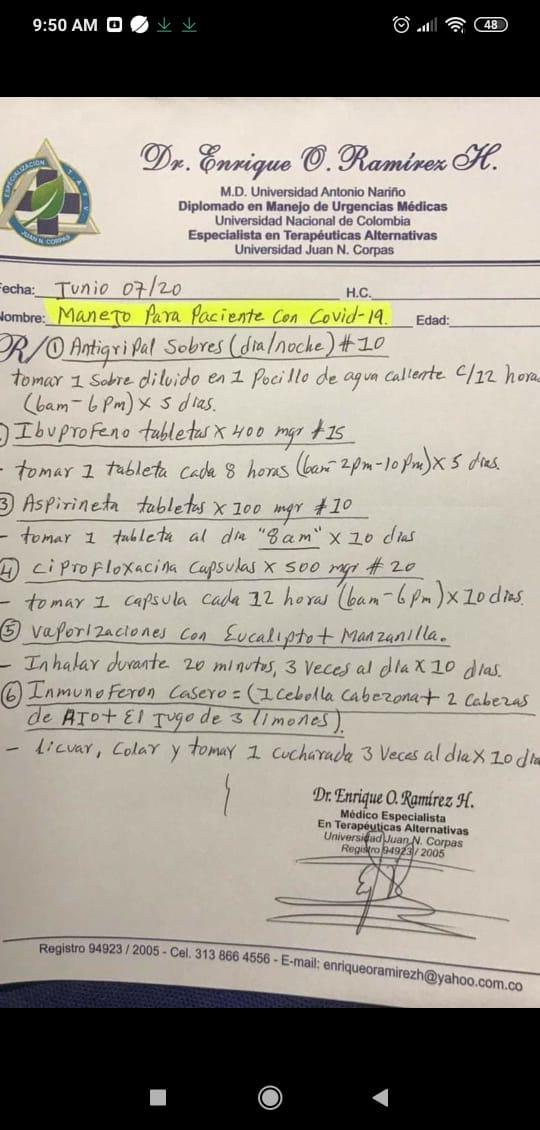 9:50 AM
48
ESPECIALIZACIÓN
JUAN N. CORPAS
Dr. Enrique O. Ramírez H.
M.D. Universidad Antonio Nariño
Diplomado en Manejo de Urgencias Médicas
Universidad Nacional de Colombia
Especialista en Terapéuticas Alternativas
Universidad Juan N. Corpas
Fecha: Junio 07/20 H.C.
Nombre: Manejo Para Paciente Con Covid-19. Edad:
R/ ① Antigripal Sobres (dia/noche) #10
tomar 1 Sobre diluido en 1 Pocillo de agua caliente c/12 horas
(6am-6pm) x 5 dias.
Ibuprofeno tabletas x 400 mgr #15
- tomar 1 tableta cada 8 horas (6am-2pm-10pm) x 5 dias.
③ Aspirineta tabletas x 100 mgr #10
- tomar 1 tableta al dia "8am" x 10 dias
④ Ciprofloxacina Capsulas x 500 mgr #20
- tomar 1 capsula cada 12 horas (6am-6pm) x 10 dias.
⑤ Vaporizaciones con Eucalipto + Manzanilla.
- Inhalar durante 20 minutos, 3 veces al dia x 10 dias.
⑥ Inmunoferon Casero = (1 cebolla Cabezona + 2 Cabezas
de AJO + El Jugo de 3 limones).
- licuar, Colar y tomar 1 Cucharada 3 Veces al dia x 10 dia
Dr. Enrique O. Ramírez H.
Médico Especialista
En Terapéuticas Alternativas
Universidad Juan N. Corpas
Registro 94923 / 2005
Registro 94923 / 2005 - Cel. 313 866 4556 - E-mail: enriqueoramirezh@yahoo.com.co